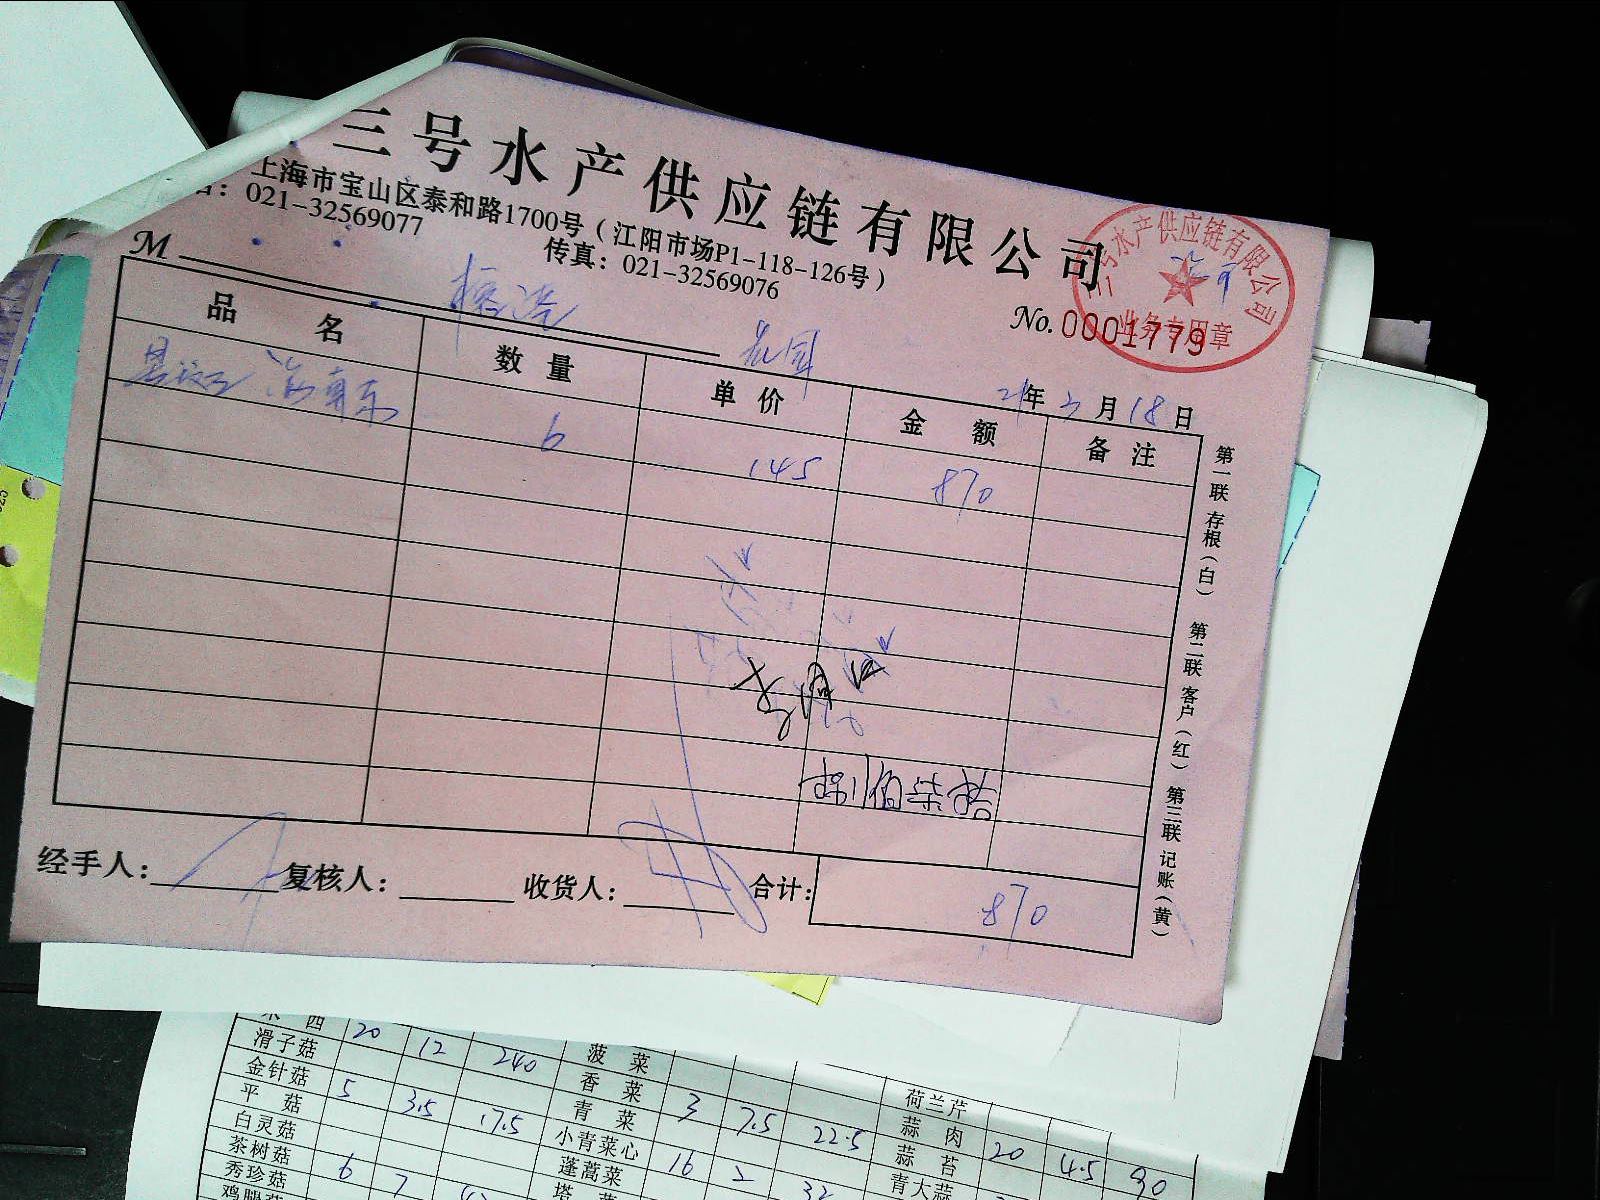 三号水产供应链有限公司
上海市宝山区泰和路1700号（江阳市场P1-118-126号）
021-32569077
传真：021-32569076
三号水产供应链有限公司
业务专用章
No. 0001779
M
21年3月18日
品名 数量 单价 金额 备注
海南东 6 145 870
捌佰柒拾
经手人： 复核人： 收货人： 合计： 870
第一联 存根（白） 第二联 客户（红） 第三联 记账（黄）
西
滑子菇 20 12 240 菠菜
金针菇 香菜 荷兰芹
平菇 5 3.5 17.5 青菜 3 7.5 22.5 蒜肉
白灵菇 小青菜心 蒜苔 20 4.5 90
茶树菇 蓬蒿菜 16 2 32 青大蒜
秀珍菇 6 7